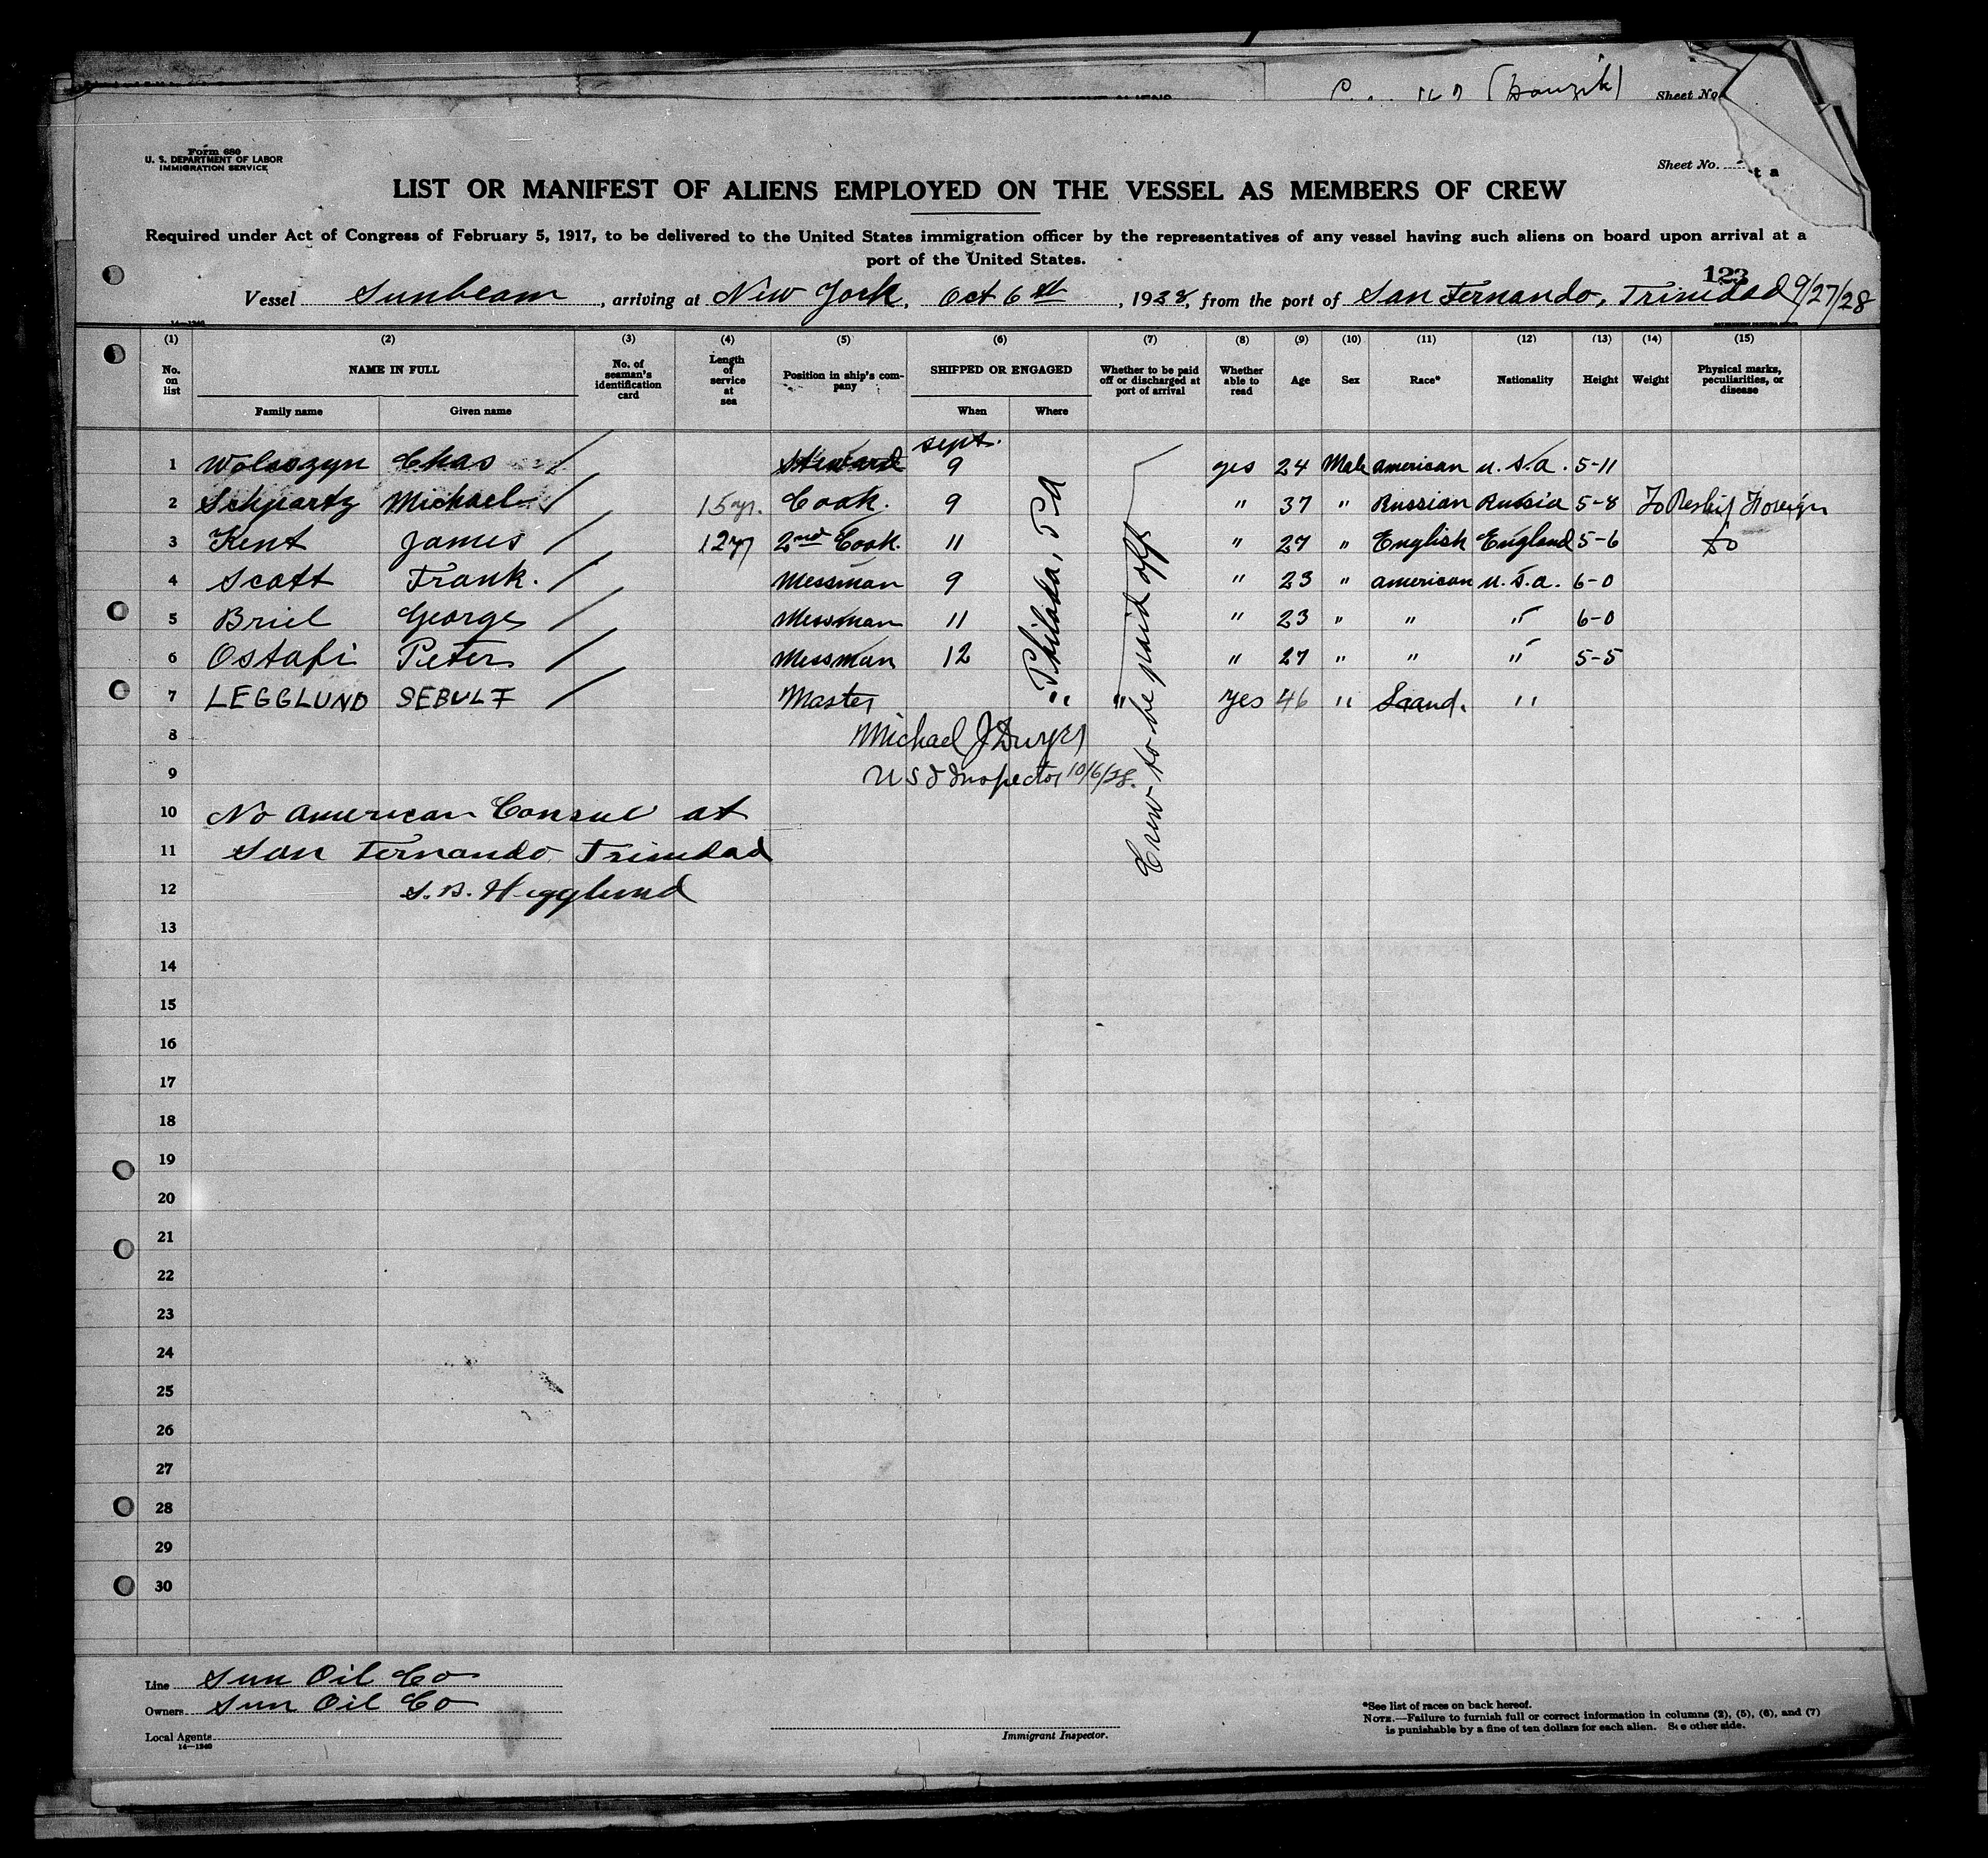 (Danzik) Sheet No.
Form 680
U. S. DEPARTMENT OF LABOR
IMMIGRATION SERVICE
Sheet No.
LIST OR MANIFEST OF ALIENS EMPLOYED ON THE VESSEL AS MEMBERS OF CREW
Required under Act of Congress of February 5, 1917, to be delivered to the United States immigration officer by the representatives of any vessel having such aliens on board upon arrival at a
port of the United States.
123
Vessel Sunbeam, arriving at New York, Oct 6th, 1928, from the port of San Fernando, Trinidad 9/27/28
14—1240
(1) (2) (3) (4) (5) (6) (7) (8) (9) (10) (11) (12) (13) (14) (15)
No. on list NAME IN FULL Family name Given name No. of seaman's identification card Length of service at sea Position in ship's company SHIPPED OR ENGAGED When Where Whether to be paid off or discharged at port of arrival Whether able to read Age Sex Race* Nationality Height Weight Physical marks, peculiarities, or disease
Sept.
1 Woloszyn Chas Steward 9 yes 24 Male American U.S.A. 5-11
2 Schwartz Michael 15 yr. Cook. 9 " 37 " Russian Russia 5-8 To Reship Foreign
3 Kent James 12 yr 2nd Cook. 11 " 27 " English England 5-6 do
4 Scott Frank. Messman 9 " 23 " American U.S.A. 6-0
5 Briel George Messman 11 " 23 " " " 6-0
6 Ostafi Peter Messman 12 " 27 " " " 5-5
7 LEGGLUND SEBULF Master " " Yes 46 " Scand. "
Philada, Pa
Crew to be paid off
8 Michael J Dwyer
9 U S I Inspector 10/6/28.
10 No American Consul at
11 San Fernando, Trinidad
12 S. B. Hegglund
13
14
15
16
17
18
19
20
21
22
23
24
25
26
27
28
29
30
Line Sun Oil Co
Owners Sun Oil Co
Local Agents
14—1240
Immigrant Inspector.
*See list of races on back hereof.
NOTE.—Failure to furnish full or correct information in columns (2), (5), (6), and (7)
is punishable by a fine of ten dollars for each alien. See other side.